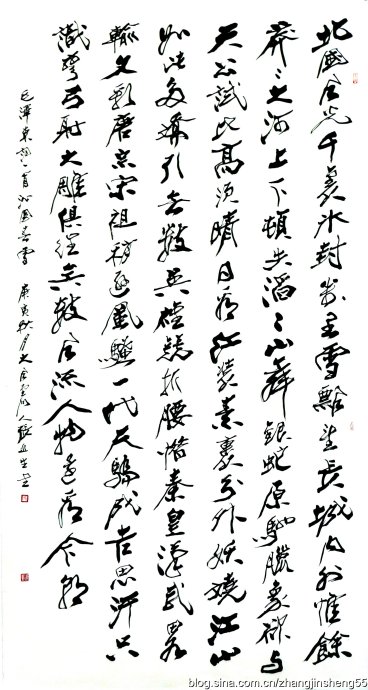 北國風光千里冰封萬里雪飄望長城內外惟餘
莽〻大河上下頓失滔〻山舞銀蛇原馳臘象欲與
天公試比高須晴日看紅裝素裹分外妖嬈江山
如此多嬌引無數英雄競折腰惜秦皇漢武略
輸文彩唐宗宋祖稍遜風騷一代天驕成吉思汗只
識彎弓射大雕俱往矣數風流人物還看今朝
毛澤東詞一首沁園春雪 庚寅秋月
blog.sina.com.cn/zhangjinsheng55